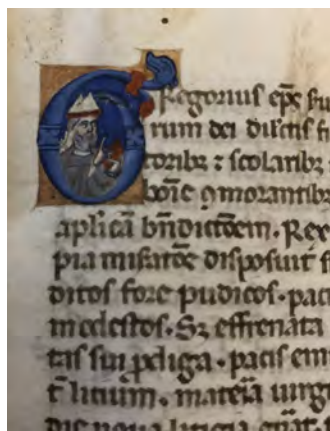 Gregorius epc̄ ser
rum dei dilctis fi
toribꝫ ⁊ scolaribꝫ
bon̄ie ꝯmorantibꝫ
aplicā bn̄dictōem. Rex
pia misatōe disposuit s
ditos fore pudicos. paci
modestos. Sꝫ effrenata
tas sui ꝓdiga. pacis em
t̄ litium. mateīa iurgi
die noua litigia